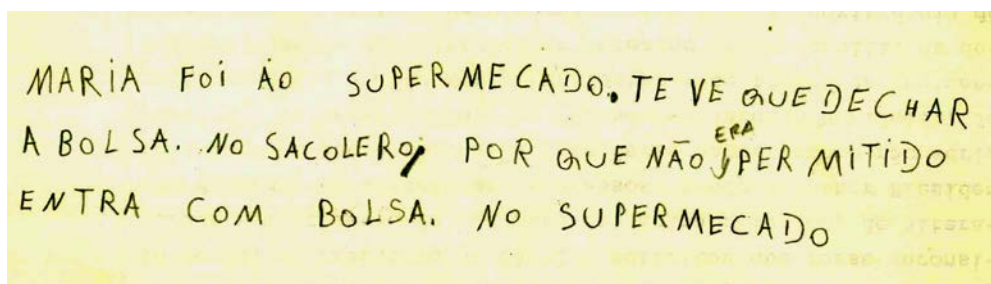 MARIA FOI AO SUPERMECADO. TE VE QUE DECHAR
A BOLSA. NO SACOLERO, POR QUE NÃO ERA PER MITIDO
ENTRA COM BOLSA. NO SUPERMECADO